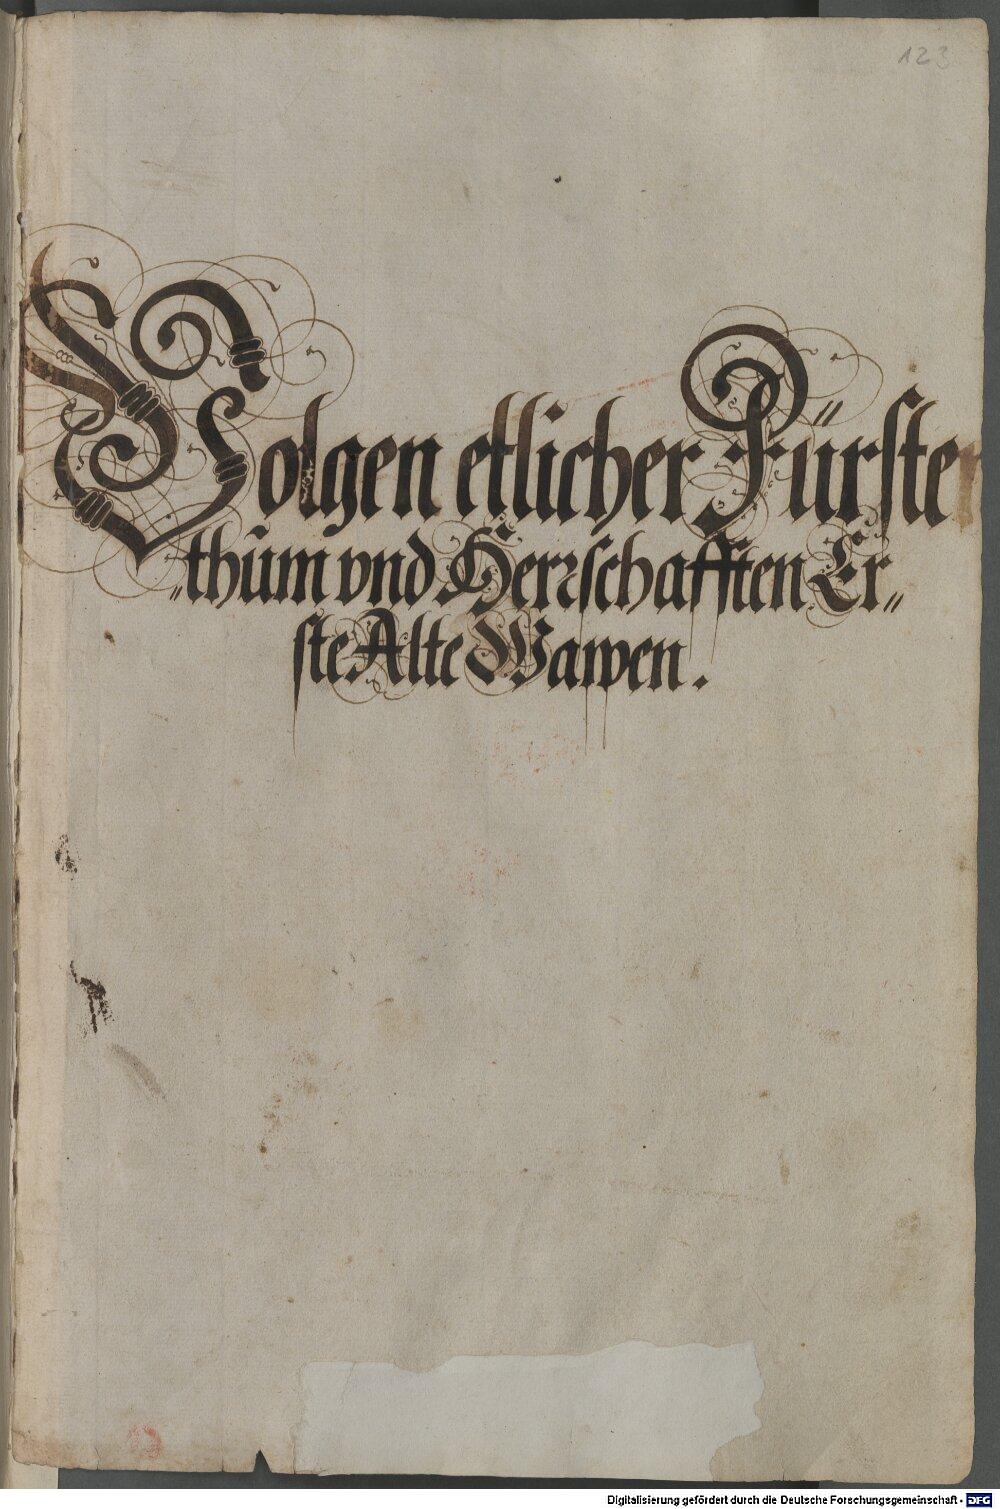 123
Volgen etlicher Fürsten
„thům vnd Herrschafften Er„
ste Alte Wawen.
Digitalisierung gefördert durch die Deutsche Forschungsgemeinschaft - DFG